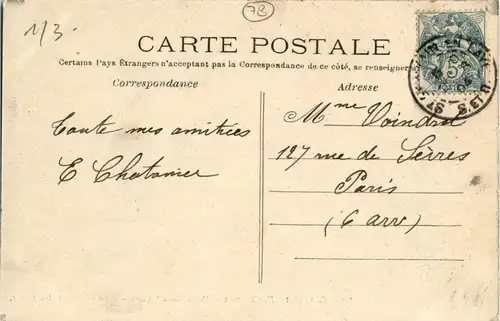 1/3
78
CARTE POSTALE
Certains Pays Étrangers n'acceptant pas la Correspondance de ce côté, se renseigner
Correspondance
Adresse
Toute mes amitiées
E Chatonier
Mme Voindrot
127 rue de Sèvres
Paris
(6 arr)
5